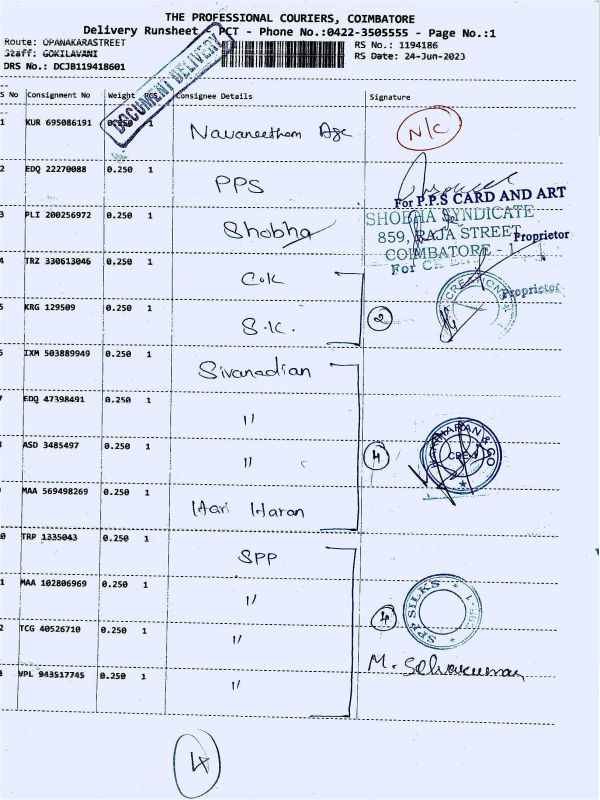 THE PROFESSIONAL COURIERS, COIMBATORE
Delivery Runsheet - PCT - Phone No.:0422-3505555 - Page No.:1
Route: OPANAKARASTREET
RS No.: 1194186
Staff: GOKILAVANI
RS Date: 24-Jun-2023
DRS No.: DCJB119418601
DOCUMENT DELIVERY
S No Consignment No Weight PCS Consignee Details Signature
1 KUR 695086191 0.250 1 Navaneetham Age N/C
2 EDQ 22270088 0.250 1 PPS
For P.P.S CARD AND ART
3 PLI 200256972 0.250 1 Shobha
SHOBHA SYNDICATE
859, RAJA STREET
Proprietor
COIMBATORE - 1
4 TRZ 330613046 0.250 1 C.K
For CK
Proprietor
CREATIONS
5 KRG 129509 0.250 1 S.K. 2
IXM 503889949 0.250 1 Sivanadian
EDQ 47398491 0.250 1 "
ASD 3485497 0.250 1 " 4
HARIHARAN & CO
CBE-1
MAA 569498269 0.250 1 Hari Haran
0 TRP 1335043 0.250 1 SPP
1 MAA 102806969 0.250 1 " 4
SPP SILKS
2 TCG 40526710 0.250 1 "
M. Selvakumar
3 VPL 943517745 0.250 1 "
4